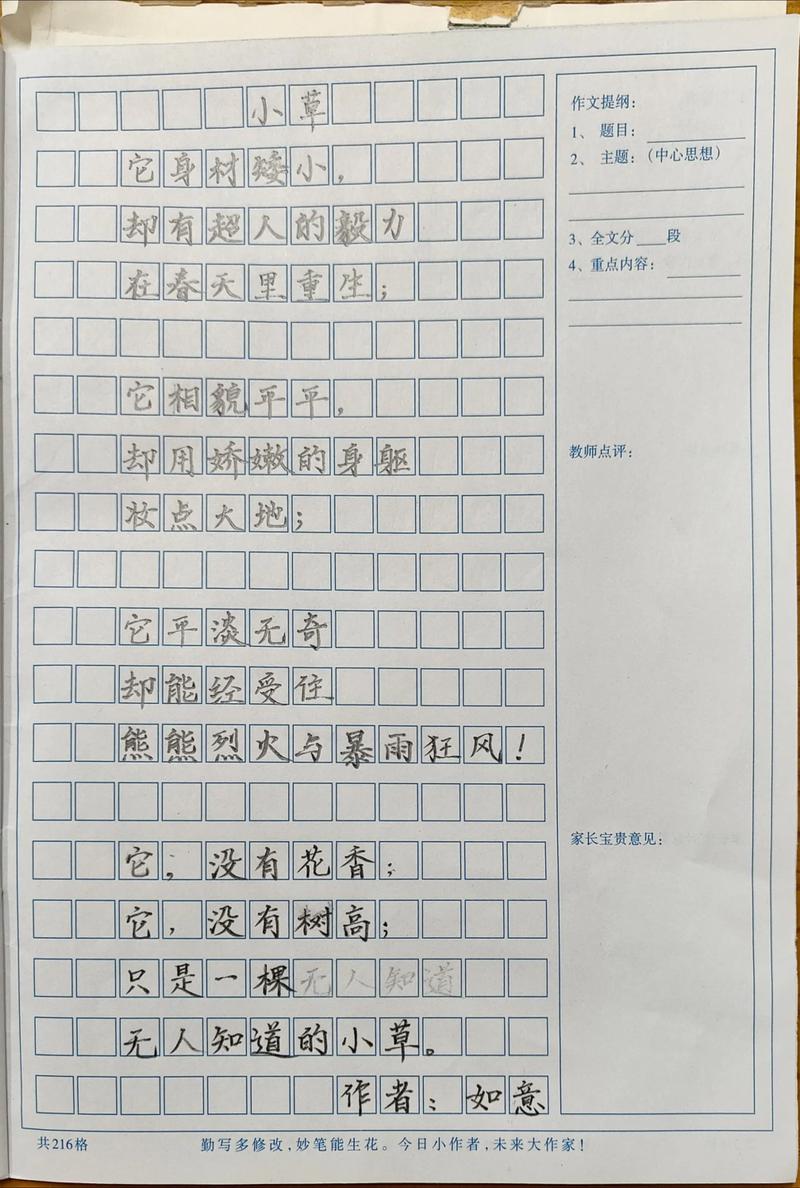 小草
它身材矮小，
却有超人的毅力
在春天里重生；
它相貌平平，
却用娇嫩的身躯
妆点大地；
它平淡无奇
却能经受住
熊熊烈火与暴雨狂风！
它；没有花香；
它，没有树高；
只是一棵无人知道
无人知道的小草。
作者：如意
作文提纲：
1、题目：
2、主题：（中心思想）
3、全文分____段
4、重点内容：
教师点评：
家长宝贵意见：
共216格
勤写多修改，妙笔能生花。今日小作者，未来大作家！